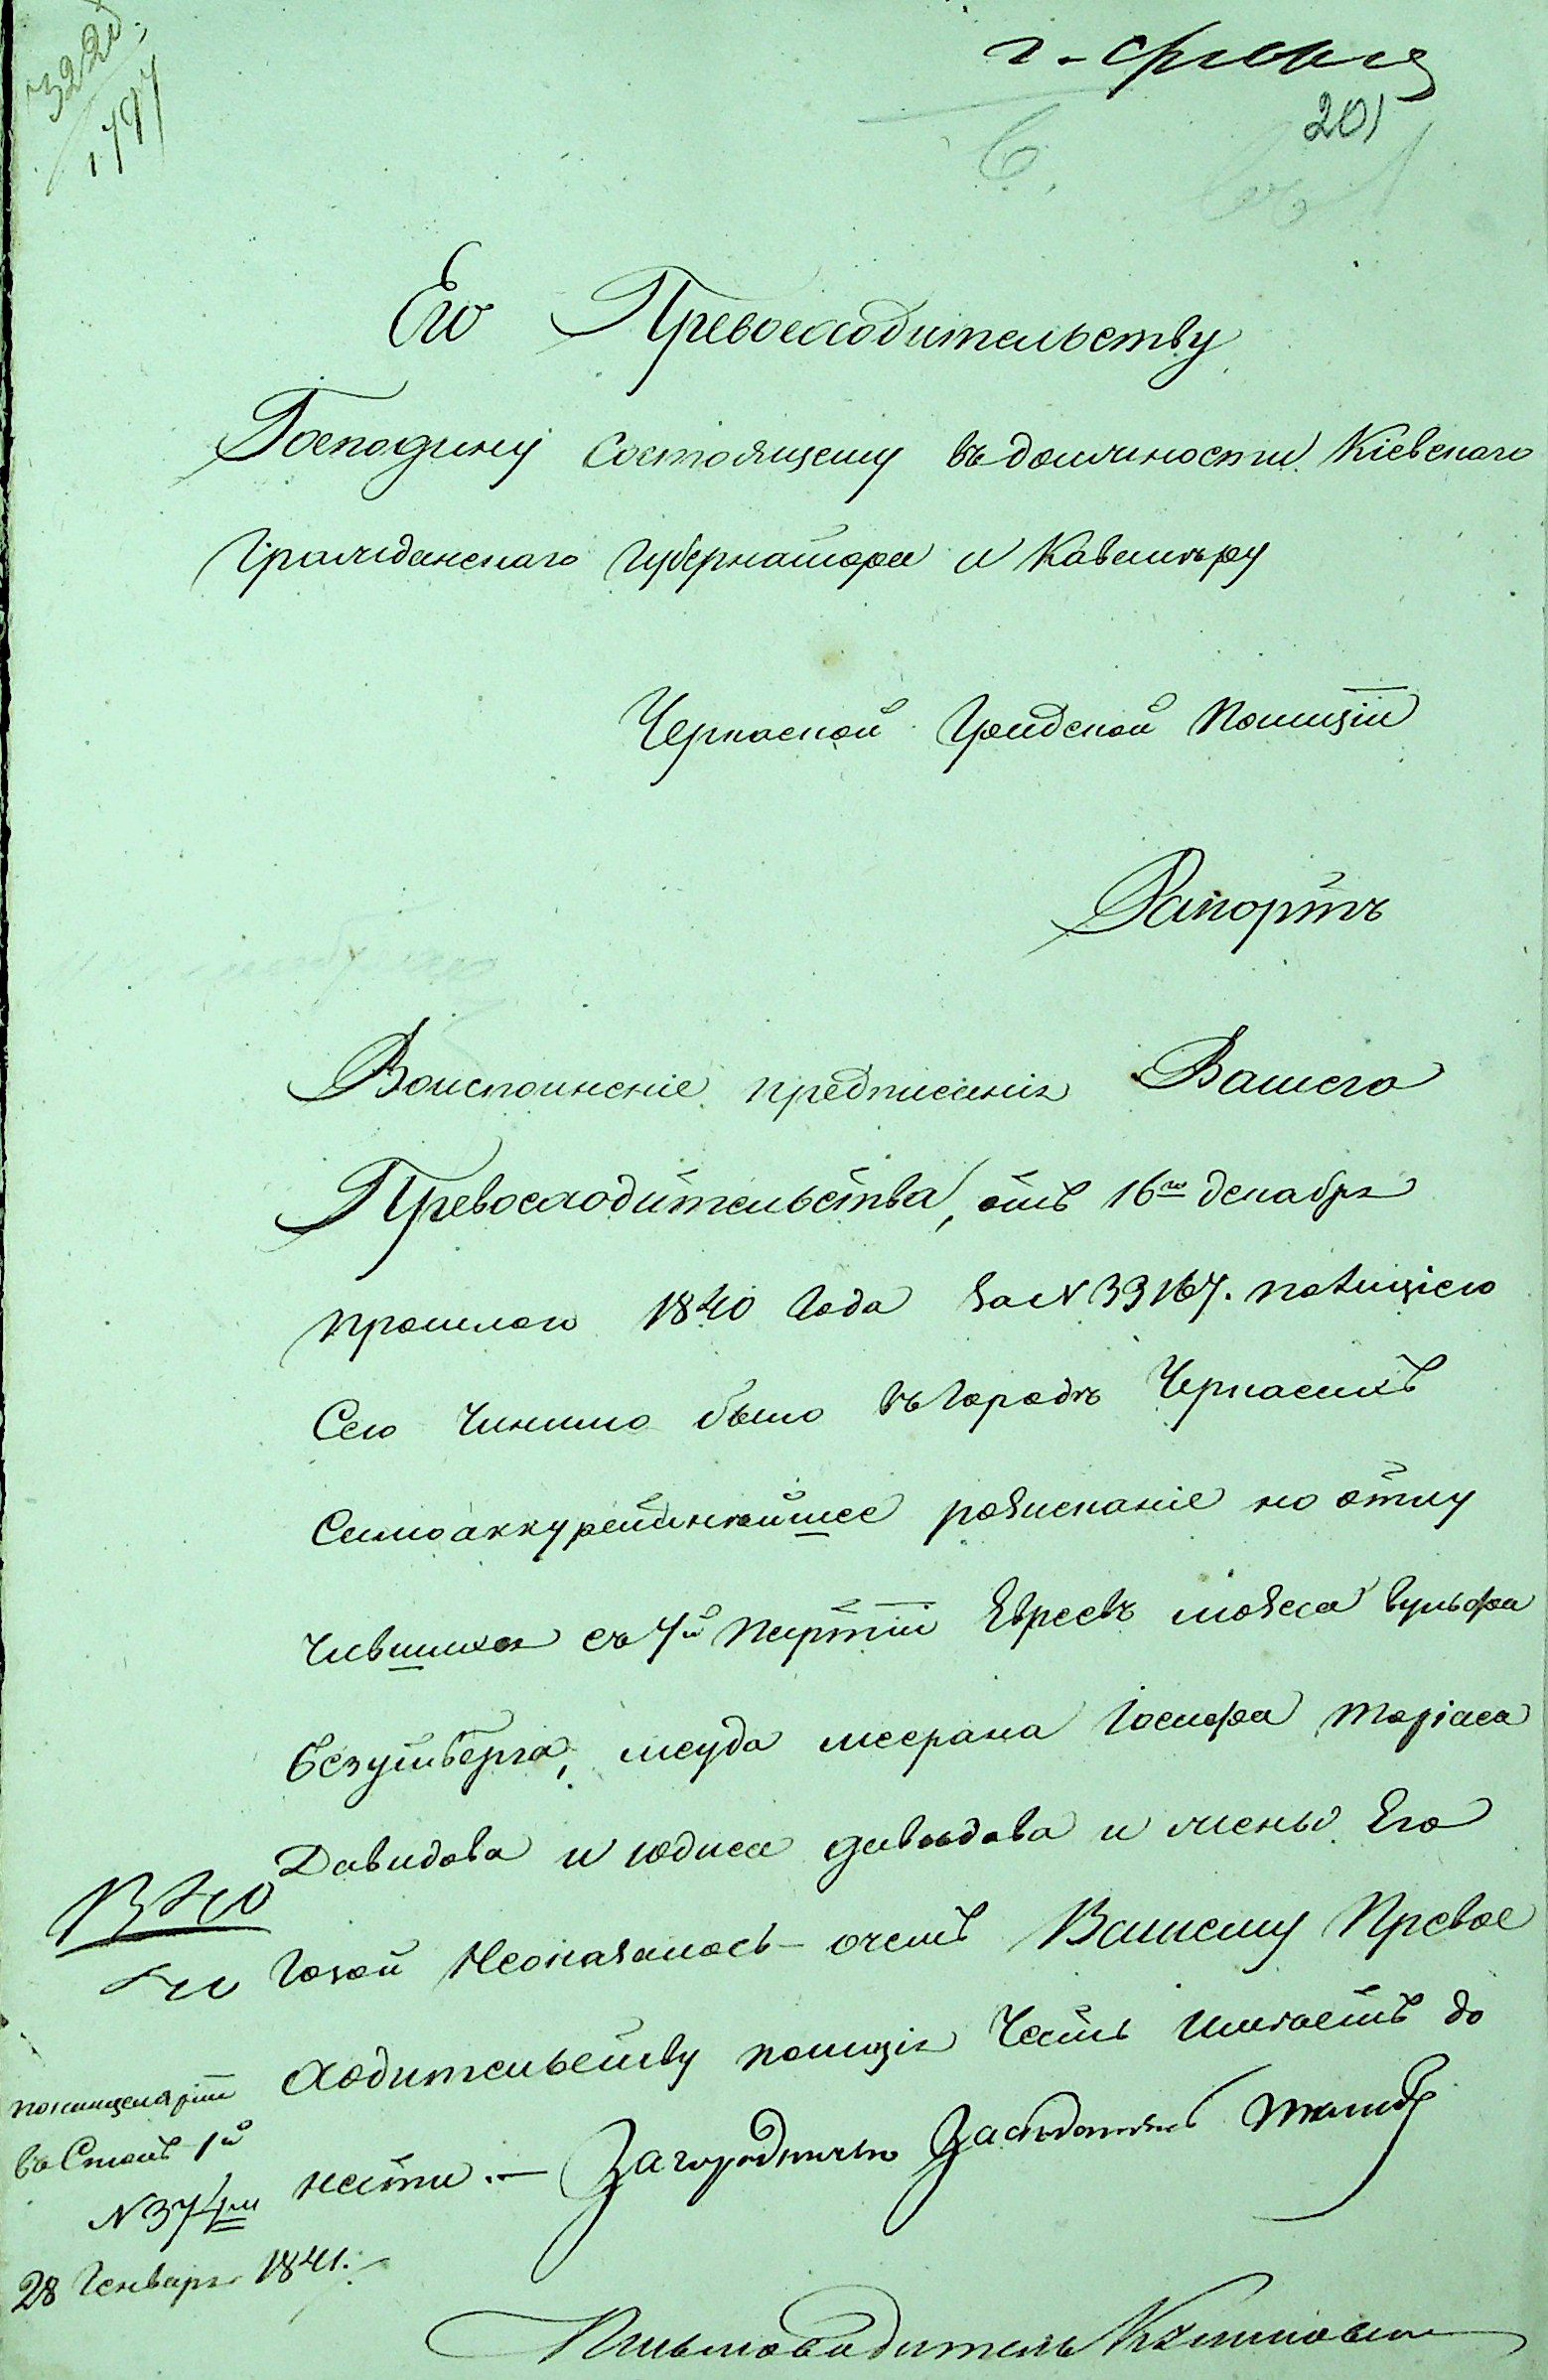 201
Его Превосходительству
Господину Состоящему въ должности Кіевскаго
Гражданскаго Губернатора и Кавалеру
Черкаской Градской Полиціи
Рапортъ
Воисполненіе предписанія Вашего
Превосходительства, отъ 16го декабря
прошлаго 1840 года за N 33167. полиціею
Сею Чинимо было въ городѣ Черкасахъ
Самоаккуратнѣйшее розисканіе но отлу
чившихся съ 7й партіи Евреевъ мозеса Вульфа
безумберга, меуда меерана Іосифа
Давидова и юдиса давыдова и жены Его
Неоказалось – очемъ Вашему Превос
ходительству полиція Честь имѣетъ до
нести. — Загородничаго Засѣдатель
Письмоводитель
въ Столъ 1й
N 374
28 Генваря 1841.